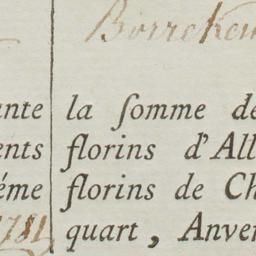 Borreken
ante la ſomme de
ents florins d'All
éme florins de Ch
1781 quart, Anver